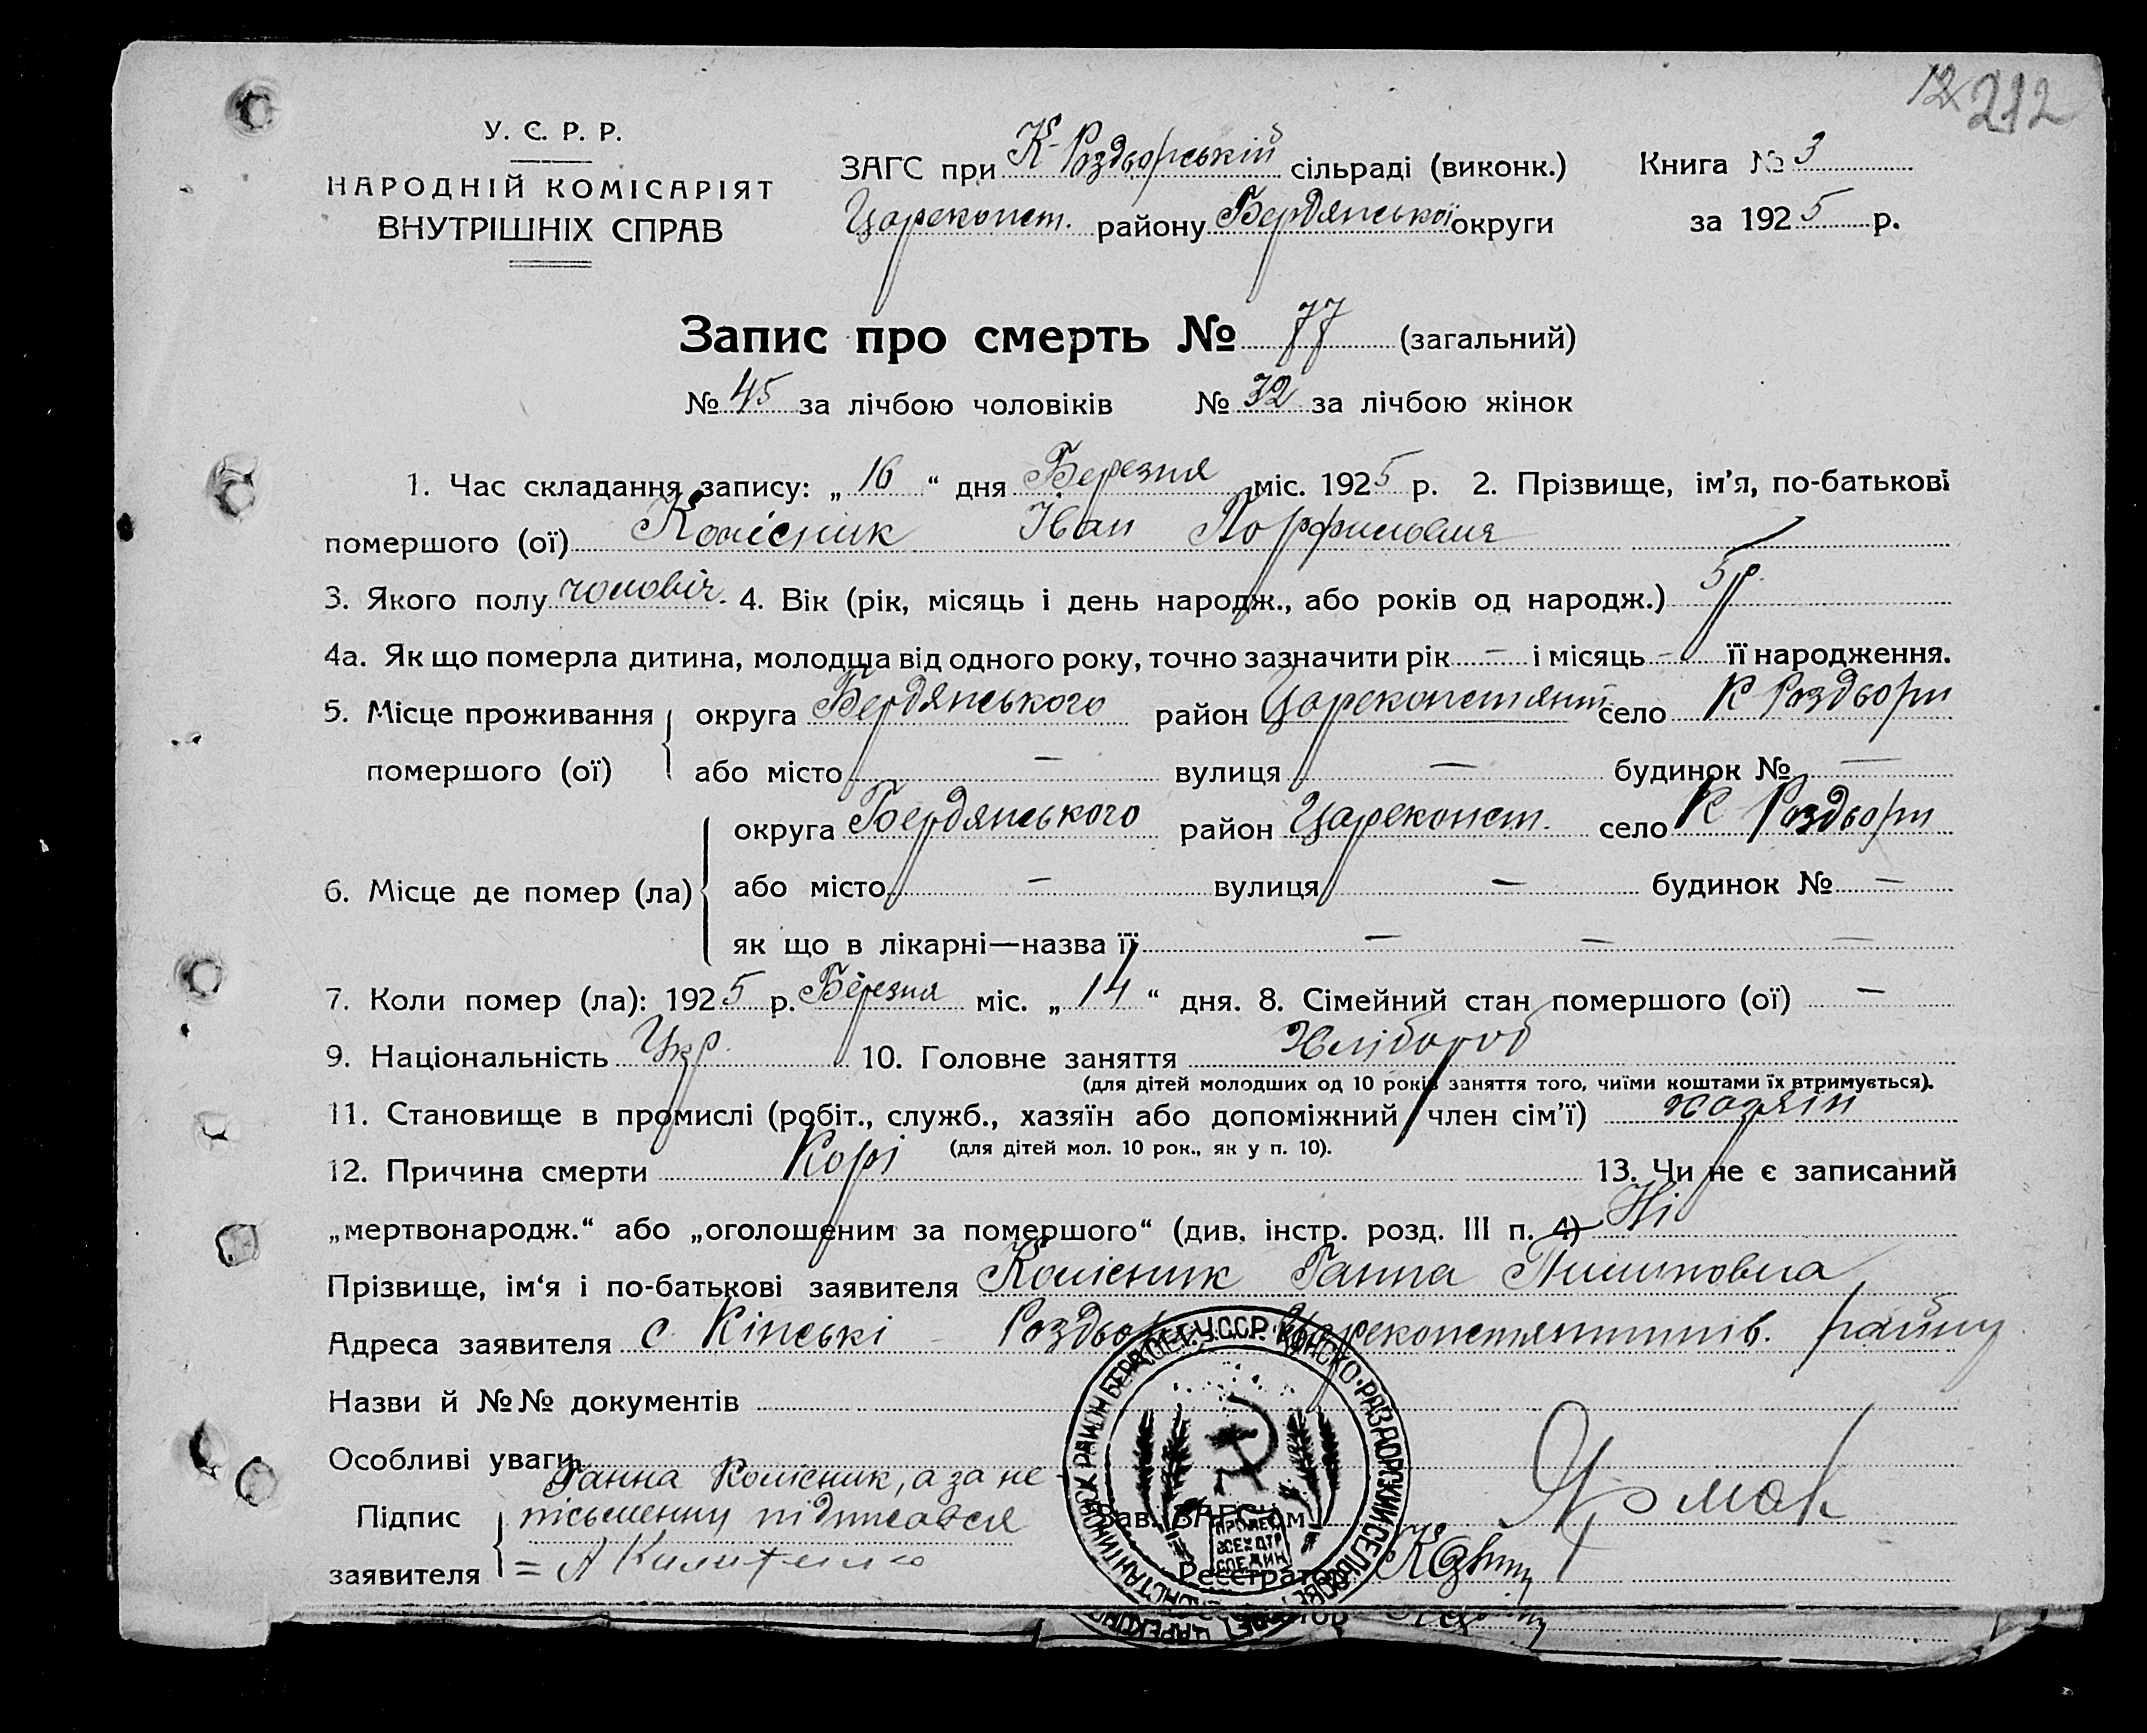 12 212
У. С. Р. Р.
НАРОДНІЙ КОМІСАРІЯТ
ВНУТРІШНІХ СПРАВ
ЗАГС при К-Роздорській сільраді (виконк.) Книга № 3
Цареконст. району Бердянської округи за 1925 р.
Запис про смерть № 77 (загальний)
№ 45 за лічбою чоловіків № 32 за лічбою жінок
1. Час складання запису: „ 16 “ дня Березня міс. 1925 р. 2. Прізвище, ім’я, по-батькові
помершого (ої) Колісник Іван
3. Якого полу чоловіч. 4. Вік (рік, місяць і день народж., або років од народж.) 5 р.
4а. Як що померла дитина, молодша від одного року, точно зазначити рік — і місяць — її народження.
5. Місце проживання округа Бердянського район Цареконстянт. село К Роздори
помершого (ої) або місто — вулиця — будинок № —
округа Бердянського район Цареконст. село К Роздори
6. Місце де помер (ла) або місто — вулиця — будинок № —
як що в лікарні—назва її — — —
7. Коли помер (ла): 1925 р. Березня міс. „ 14 “ дня. 8. Сімейний стан помершого (ої) —
9. Національність Укр. 10. Головне заняття Хлібороб
(для дітей молодших од 10 років заняття того, чиїми коштами їх втримується).
11. Становище в промислі (робіт., служб., хазяїн або допоміжний член сім’ї) хазяїн
(для дітей мол. 10 рок., як у п. 10).
12. Причина смерти Корі 13. Чи не є записаний
„мертвонародж.“ або „оголошеним за помершого“ (див. інстр. розд. III п. 4) Ні
Прізвище, ім‘я і по-батькові заявителя Колісник Ганна
Адреса заявителя с. Кінські - Роздори Цареконстянтинів. району
Назви й №№ документів
Особливі уваги
Підпис заявителя Ганна Колісник, а за не
письменну підписався
= А
Зав. ЗАГС'ом
Реєстратор
У.С.С.Р. КОНСКО-РАЗДОРСКИЙ СЕЛЬСОВЕТ ЦАРЕКОНСТАНТИНОВСК РАЙОН
ПРОЛЕТ
ВСЕХ СТР
СОЕДИН